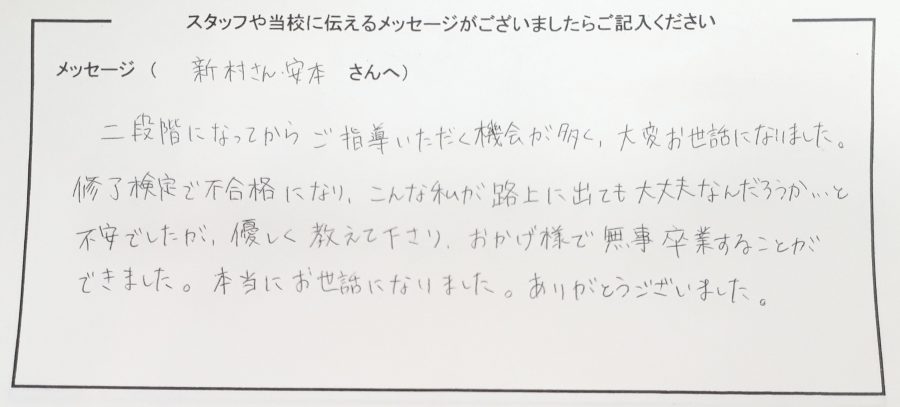 スタッフや当校に伝えるメッセージがございましたらご記入ください
メッセージ（ 新村さん・安本 さんへ）
二段階になってからご指導いただく機会が多く、大変お世話になりました。
修了検定で不合格になり、こんな私が路上に出ても大丈夫なんだろうか…と
不安でしたが、優しく教えて下さり、おかげ様で無事卒業することが
できました。本当にお世話になりました。ありがとうございました。